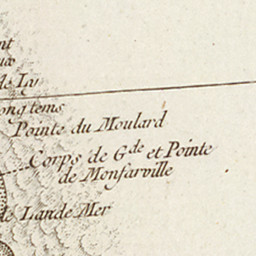 nt
de Ly
ongtems
Pointe du Moulard
Corps de Gde et Pointe
de Monfarville
de Lande Mer